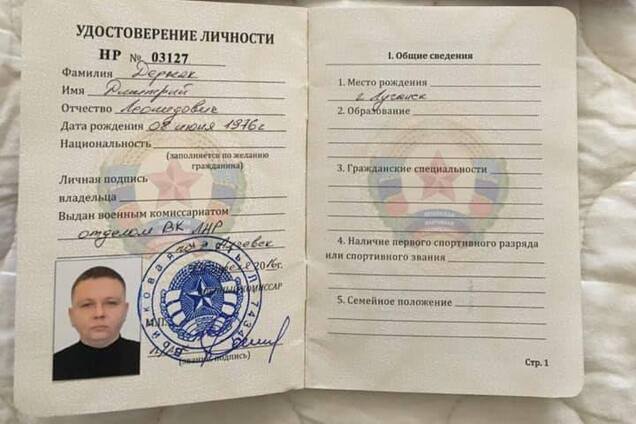 УДОСТОВЕРЕНИЕ ЛИЧНОСТИ
НР № 03127
Фамилия
Имя Дмитрий
Отчество Леонидович
Дата рождения 08 июня 1976г
Национальность
(заполняется по желанию
гражданина)
Личная подпись
владельца
Выдан военным комиссариатом
отделом ВК ЛНР
2016г.
М.П.
(звание, подпись)
I. Общие сведения
1. Место рождения
г. Луганск
2. Образование
3. Гражданские специальности
4. Наличие первого спортивного разряда
или спортивного звания
5. Семейное положение
Стр. 1